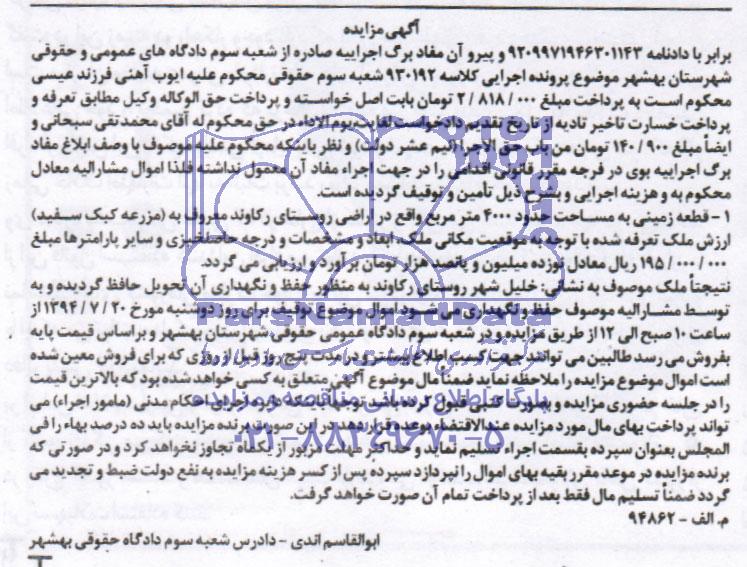 آگهی مزایده
برابر با دادنامه ۹۲۰۹۹۷۱۹۴۶۳۰۱۱۴۳ و پیرو آن مفاد برگ اجراییه صادره از شعبه سوم دادگاه های عمومی و حقوقی
شهرستان بهشهر موضوع پرونده اجرایی کلاسه ۹۳۰۱۹۲ شعبه سوم حقوقی محکوم علیه ایوب آهنی فرزند عیسی
محکوم است به پرداخت مبلغ ۲/۸۱۸/۰۰۰ تومان بابت اصل خواسته و پرداخت حق الوکاله وکیل مطابق تعرفه و
پرداخت خسارت تاخیر تادیه از تاریخ تقدیم دادخواست لغایت یوم الاداء در حق محکوم له آقای محمدتقی سبحانی و
ایضاً مبلغ ۱۴۰/۹۰۰ تومان من باب حق الاجرا (نیم عشر دولت) و نظر باینکه محکوم علیه موصوف با وصف ابلاغ مفاد
برگ اجراییه بوی در فرجه مقرر قانونی اقدامی را در جهت اجراء مفاد آن معمول نداشته فلذا اموال مشارالیه معادل
محکوم به و هزینه اجرایی و بشرح ذیل تأمین و توقیف گردیده است.
۱- قطعه زمینی به مساحت حدود ۴۰۰۰ متر مربع واقع در اراضی روستای رکاوند معروف به (مزرعه کبک سفید)
ارزش ملک تعرفه شده با توجه به موقعیت مکانی ملک، ابعاد و مشخصات و درجه حاصلخیزی و سایر پارامترها مبلغ
۱۹۵/۰۰۰/۰۰۰ ریال معادل نوزده میلیون و پانصد هزار تومان برآورد و ارزیابی می گردد.
نتیجتاً ملک موصوف به نشانی: خلیل شهر روستای رکاوند به منظور حفظ و نگهداری آن تحویل حافظ گردیده و به
توسط مشارالیه موصوف حفظ و نگهداری می شود اموال موضوع توقیف برای روز دوشنبه مورخ ۱۳۹۴/۷/۲۰ از
ساعت ۱۰ صبح الی ۱۲ از طریق مزایده و در شعبه سوم دادگاه عمومی حقوقی شهرستان بهشهر و براساس قیمت پایه
بفروش می رسد طالبین می توانند جهت کسب اطلاع بیشتر و در مدت پنج روز قبل از روزی که برای فروش معین شده
است اموال موضوع مزایده را ملاحظه نماید ضمناً مال موضوع آگهی متعلق به کسی خواهد شد بود که بالاترین قیمت
را در جلسه حضوری مزایده و بصورت کتبی قبول کرده باشد توجهاً باینکه دادورز اجرای احکام مدنی (مامور اجراء) می
تواند پرداخت بهای مال مورد مزایده عندالاقتضاء بوعده قرار دهد در این صورت برنده مزایده باید ده درصد بهاء را فی
المجلس بعنوان سپرده بقسمت اجراء تسلیم نماید و حداکثر مهلت مزبور از یکماه تجاوز نخواهد کرد و در صورتی که
برنده مزایده در موعد مقرر بقیه بهای اموال را نپردازد سپرده پس از کسر هزینه مزایده به نفع دولت ضبط و تجدید می
گردد ضمناً تسلیم مال فقط بعد از پرداخت تمام آن صورت خواهد گرفت.
م. الف - ۹۴۸۶۲
ابوالقاسم اندی - دادرس شعبه سوم دادگاه حقوقی بهشهر
ParsNamadData
پایگاه اطلاع رسانی مناقصه و مزایده
۰۲۱-۸۸۳۴۹۶۷۰-۵